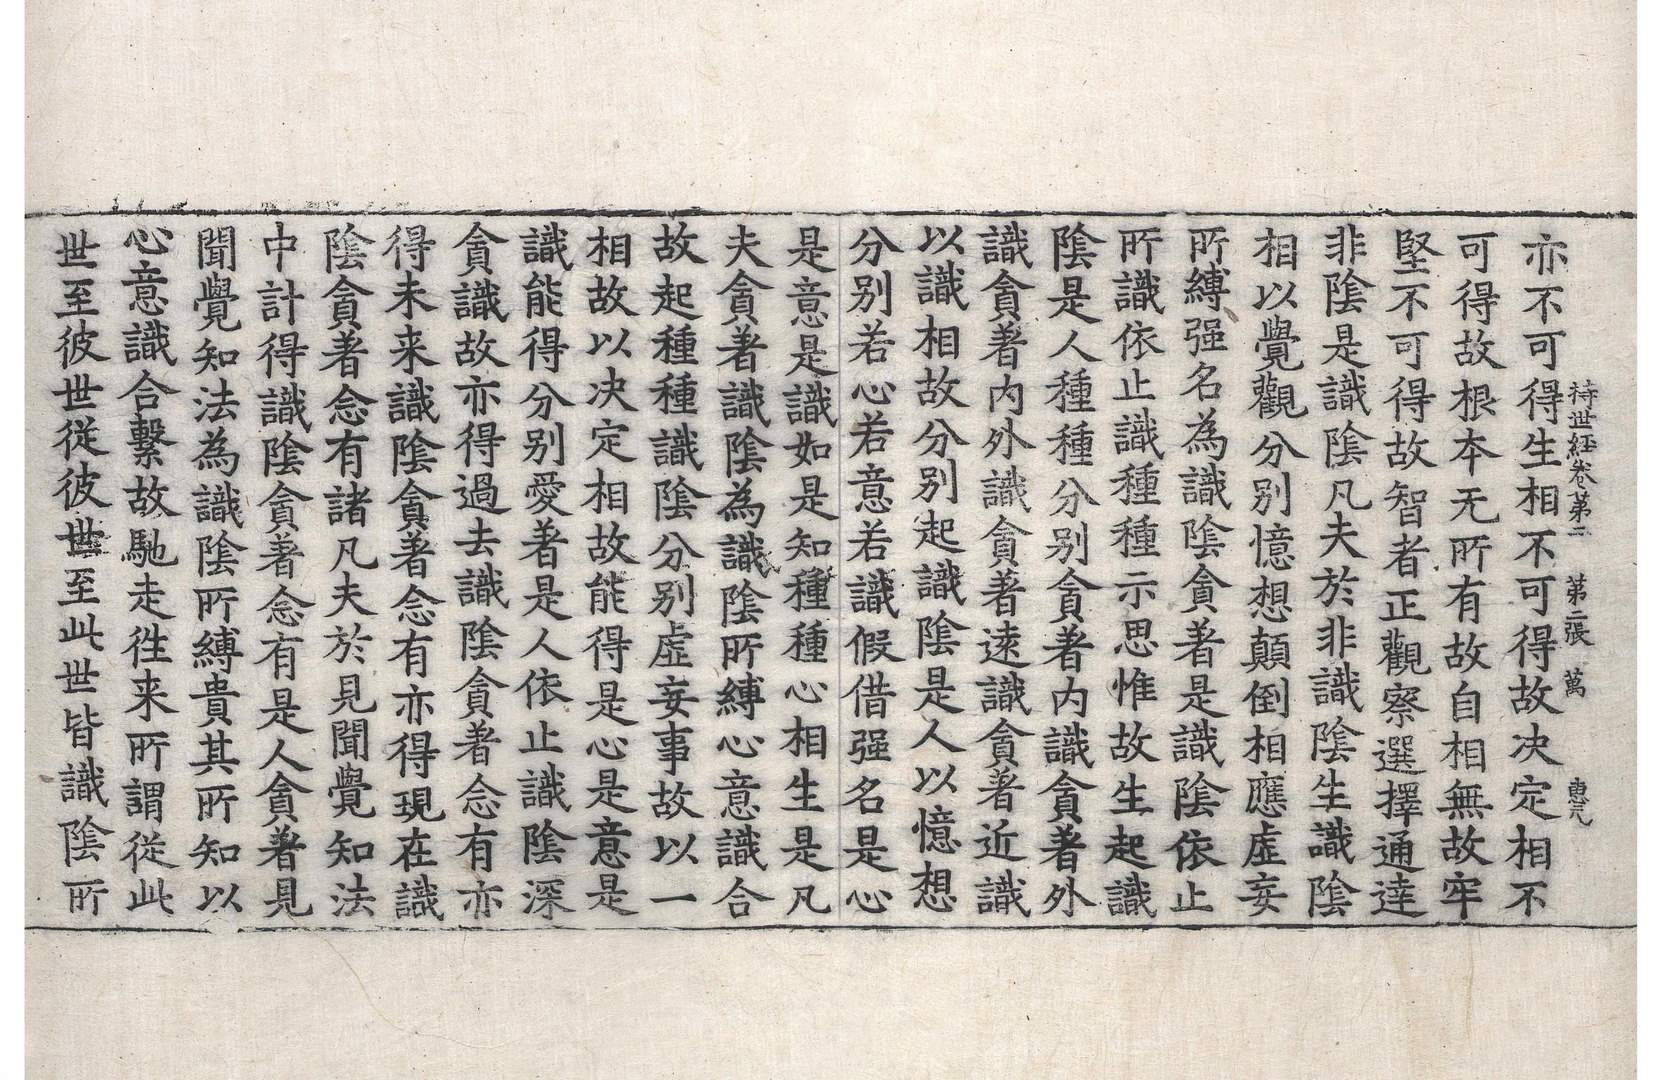 持世経卷第二　第二張　萬　惠元
亦不可得生相不可得故决定相不
可得故根本无所有故自相無故牢
堅不可得故智者正觀察選擇通達
非隂是識隂凡夫於非識隂生識隂
相以覺觀分別憶想顛倒相應虛妄
所縛强名為識隂貪著是識隂依止
所識依止識種種示思惟故生起識
隂是人種種分別貪著内識貪著外
識貪著内外識貪著遠識貪著近識
以識相故分別起識隂是人以憶想
分別若心若意若識假借强名是心
是意是識如是知種種心相生是凡
夫貪著識隂為識隂所縛心意識合
故起種種識隂分別虛妄事故以一
相故以决定相故能得是心是意是
識能得分別愛著是人依止識隂深
貪識故亦得過去識隂貪著念有亦
得未来識隂貪著念有亦得現在識
隂貪著念有諸凡夫於見聞覺知法
中計得識隂貪著念有是人貪著見
聞覺知法為識隂所縛貴其所知以
心意識合繫故馳走徃来所謂從此
世至彼世從彼世至此世皆識隂所